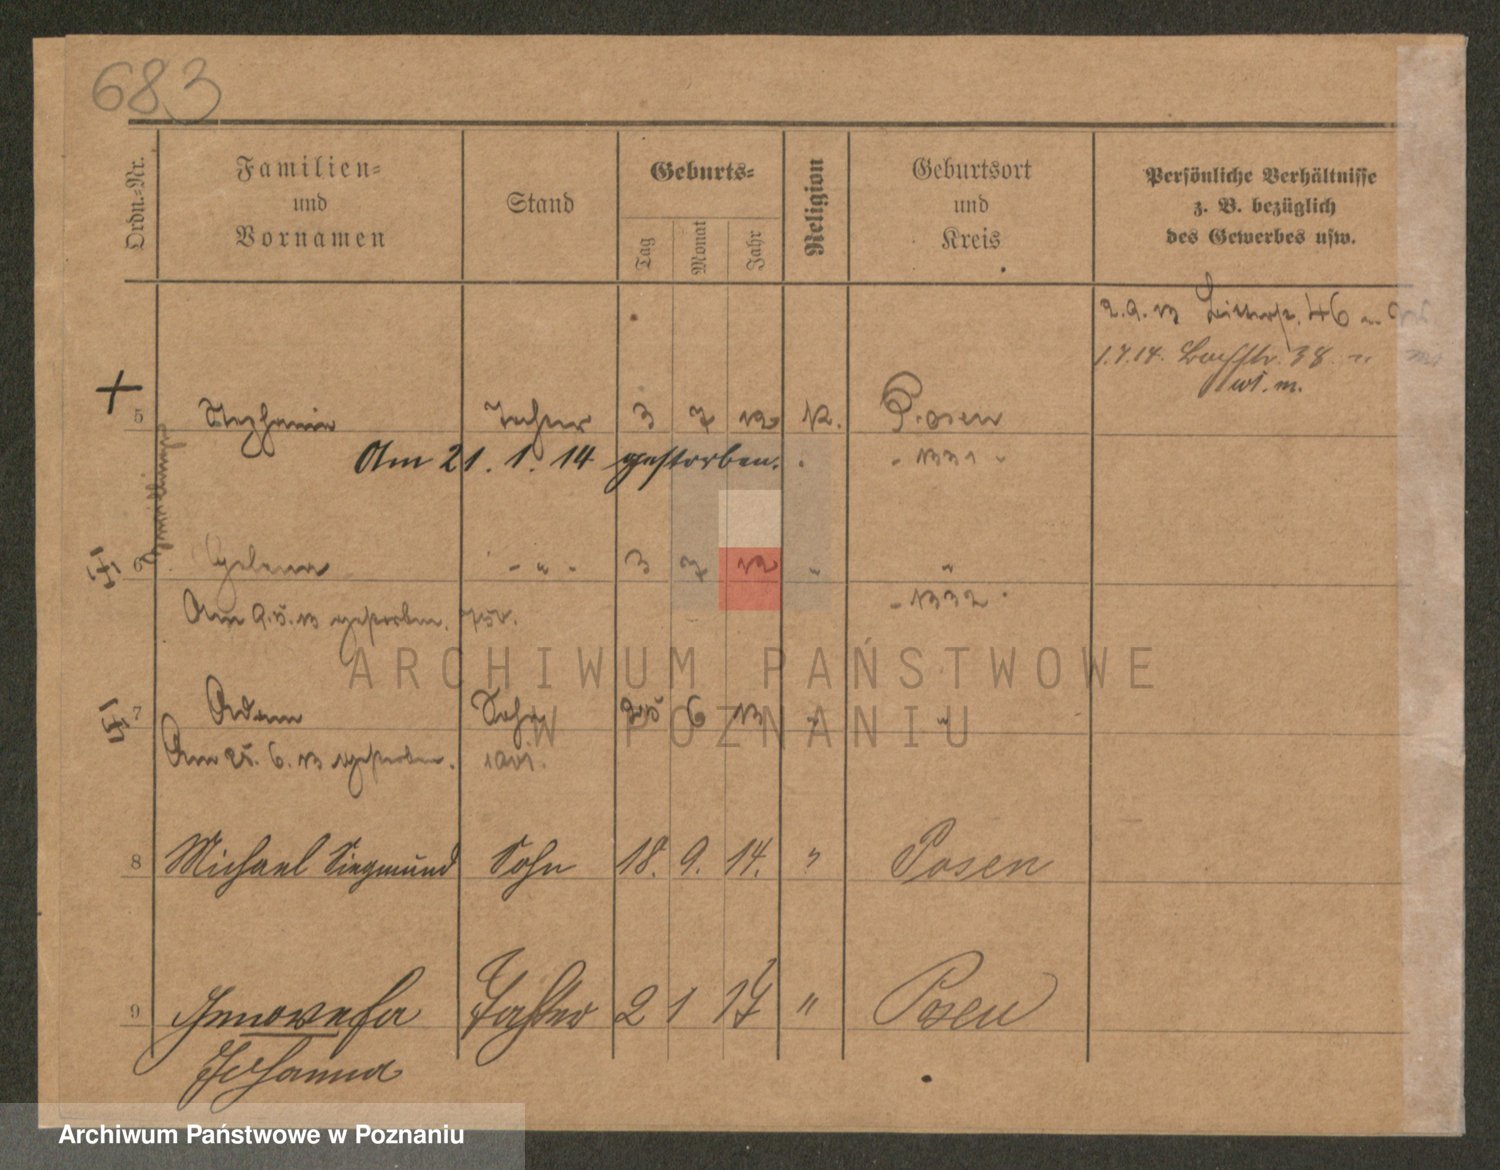 683
Ordn.-Nr.
Familien-
und
Vornamen
Stand
Geburts-
Tag
Monat
Jahr
Religion
Geburtsort
und
Kreis
Persönliche Verhältnisse
z. B. bezüglich
des Gewerbes usw.
2. 9. 13 46
1.7.14. Bachstr. 38
5 Stephanie Tochter 3 7 12 k. Posen
Am 21. 1. 14 gestorben. - 1331 -
6 Helena - " - 3 7 12 " "
Am 9. 5. 13 gestorben. - 1332 -
ARCHIWUM PAŃSTWOWE
W POZNANIU
7 Adam Sohn 25 6 13 " "
Am 25. 6. 13 gestorben.
8 Michael Siegmund Sohn 18. 9. 14. " Posen
9 Genowefa Tochter 2 1 17 " Posen
Johanna
Archiwum Państwowe w Poznaniu